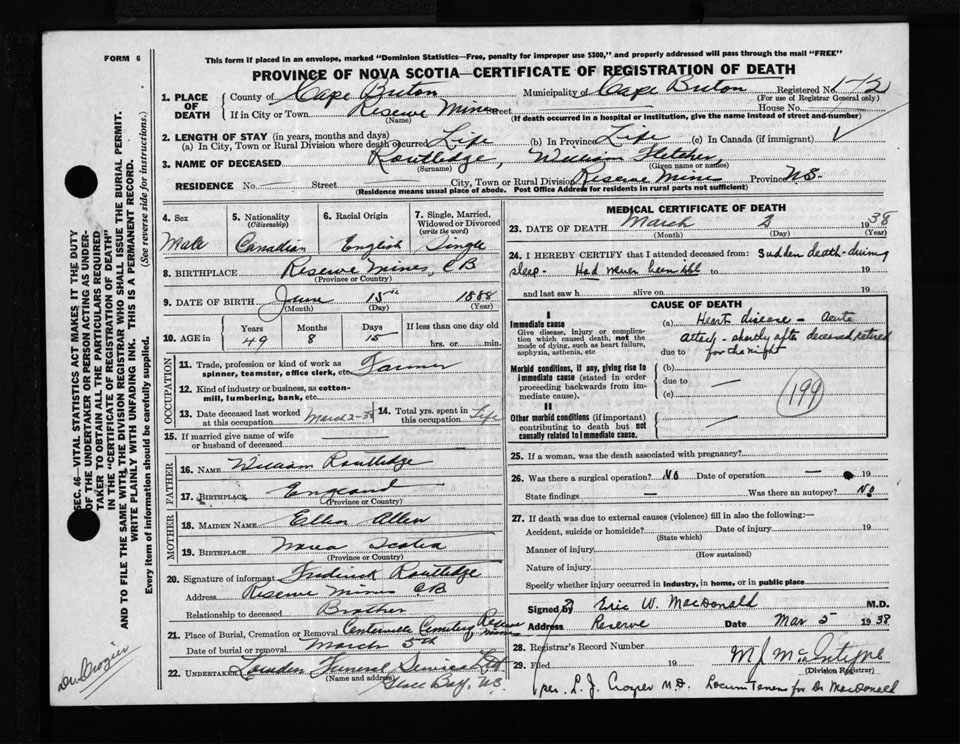 FORM 6
This form if placed in an envelope, marked "Dominion Statistics—Free, penalty for improper use $300," and properly addressed will pass through the mail "FREE"
PROVINCE OF NOVA SCOTIA—CERTIFICATE OF REGISTRATION OF DEATH
1. PLACE OF DEATH County of Cape Breton Municipality of Cape Breton Registered No. 172
(For use of Registrar General only)
If in City or Town Reserve Mines Street House No.
(Name) (If death occurred in a hospital or institution, give the name instead of street and number)
2. LENGTH OF STAY (in years, months and days)
(a) In City, Town or Rural Division where death occurred Life (b) In Province Life (c) In Canada (if immigrant)
3. NAME OF DECEASED Routledge, William Fletcher
(Surname) (Given name or names)
RESIDENCE No. Street City, Town or Rural Division Reserve Mines Province N.S.
(Residence means usual place of abode. Post Office Address for residents in rural parts not sufficient)
4. Sex 5. Nationality 6. Racial Origin 7. Single, Married, Widowed or Divorced
(Citizenship) (write the word)
Male Canadian English Single
8. BIRTHPLACE Reserve Mines, CB
(Province or Country)
9. DATE OF BIRTH June 15th 1888
(Month) (Day) (Year)
10. AGE in Years Months Days If less than one day old
49 8 15 hrs. or min.
OCCUPATION
11. Trade, profession or kind of work as spinner, teamster, office clerk, etc. Farmer
12. Kind of industry or business, as cotton-mill, lumbering, bank, etc.
13. Date deceased last worked at this occupation March 2-38 14. Total yrs. spent in this occupation Life
15. If married give name of wife or husband of deceased
FATHER
16. NAME William Routledge
17. BIRTHPLACE England
(Province or Country)
MOTHER
18. MAIDEN NAME Ellen Allen
19. BIRTHPLACE Nova Scotia
(Province or Country)
20. Signature of informant Fredrick Routledge
Address Reserve Mines CB
Relationship to deceased Brother
21. Place of Burial, Cremation or Removal Centreville Cemetery, Reserve Mines
Date of burial or removal March 5th
22. UNDERTAKER Funeral Service Ltd
(Name and address)
Glace Bay, N.S.
MEDICAL CERTIFICATE OF DEATH
23. DATE OF DEATH March 2 1938
(Month) (Day) (Year)
24. I HEREBY CERTIFY that I attended deceased from: Sudden death-during
sleep - Had never been ill to 19
and last saw h alive on 19
CAUSE OF DEATH
I
Immediate cause (a) Heart disease - Acute
Give disease, injury or complication which caused death, not the mode of dying, such as heart failure, asphyxia, asthenia, etc
attack - shortly after deceased retired
due to for the night
Morbid conditions, if any, giving rise to immediate cause (stated in order proceeding backwards from immediate cause).
(b)
due to —
(c)
(199)
II
Other morbid conditions (if important) contributing to death but not causally related to immediate cause.
25. If a woman, was the death associated with pregnancy?
26. Was there a surgical operation? No Date of operation — 19
State findings — Was there an autopsy? No
27. If death was due to external causes (violence) fill in also the following:—
Accident, suicide or homicide? Date of injury 19
(State which)
Manner of injury
(How sustained)
Nature of injury
Specify whether injury occurred in industry, in home, or in public place
Signed by Eric W. MacDonald M.D.
Address Reserve Date Mar 5 1938
28. Registrar's Record Number
29. Filed 19 M J McIntyre
(Division Registrar)
per. L. J. Crozier M.D. Locum Tenens for Dr MacDonald
SEC. 46—VITAL STATISTICS ACT MAKES IT THE DUTY
OF THE UNDERTAKER OR PERSON ACTING AS UNDER-
TAKER TO OBTAIN ALL THE PARTICULARS REQUIRED
IN THE "CERTIFICATE OF REGISTRATION OF DEATH"
AND TO FILE THE SAME WITH THE DIVISION REGISTRAR WHO SHALL ISSUE THE BURIAL PERMIT.
WRITE PLAINLY WITH UNFADING INK. THIS IS A PERMANENT RECORD.
Every item of information should be carefully supplied. (See reverse side for instructions.)
Dr. Crozier